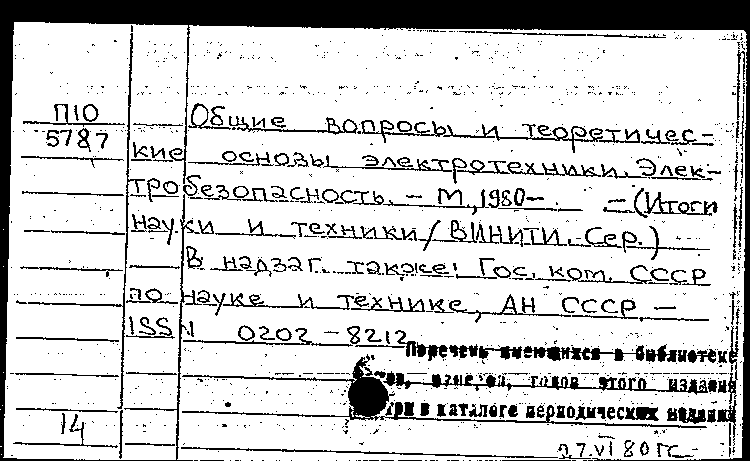 П10
5787
Общие вопросы и теоретичес-
кие основы электротехники. Элек-
тробезопасность. – М., 1980– . – (Итоги
науки и техники / ВИНИТИ. Сер.)
В надзаг. также: Гос. ком. СССР
по науке и технике, АН СССР. –
ISSN 0202-8212
Перечень имеющихся в библиотеке
годов этого издания
в каталоге периодических изданий
14